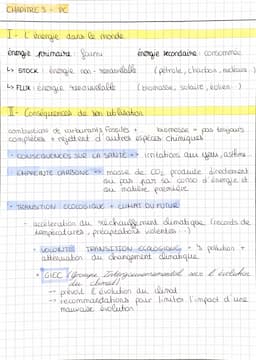 CHAPITRE 3 - PC
I - L'énergie dans le monde
énergie primaire : fourni énergie secondaire : consommée
↳ STOCK : énergie non-renouvelable (pétrole, charbon, nucléaire...)
↳ FLUX : énergie renouvelable (biomasse, solaire, éolien...)
II - Conséquences de son utilisation
combustions de carburants fossiles + biomasse = pas toujours
complètes + rejettent d'autres espèces chimiques
- CONSÉQUENCES SUR LA SANTÉ => irritations aux yeux, asthme...
- EMPREINTE CARBONE => masse de CO2 produite directement
ou pas par sa conso d'énergie et
ou matière première
- TRANSITION ECOLOGIQUE + CLIMAT DU FUTUR
→ accélération du réchauffement climatique (records de
températures, précipitations violentes...)
• VOLONTÉ TRANSITION ECOLOGIQUE = ↘ pollution +
atténuation du changement climatique
• GIEC (Groupe Intergouvernemental sur l'évolution
du climat)
→ prévoit l'évolution du climat
→ recommandations pour limiter l'impact d'une
mauvaise évolution